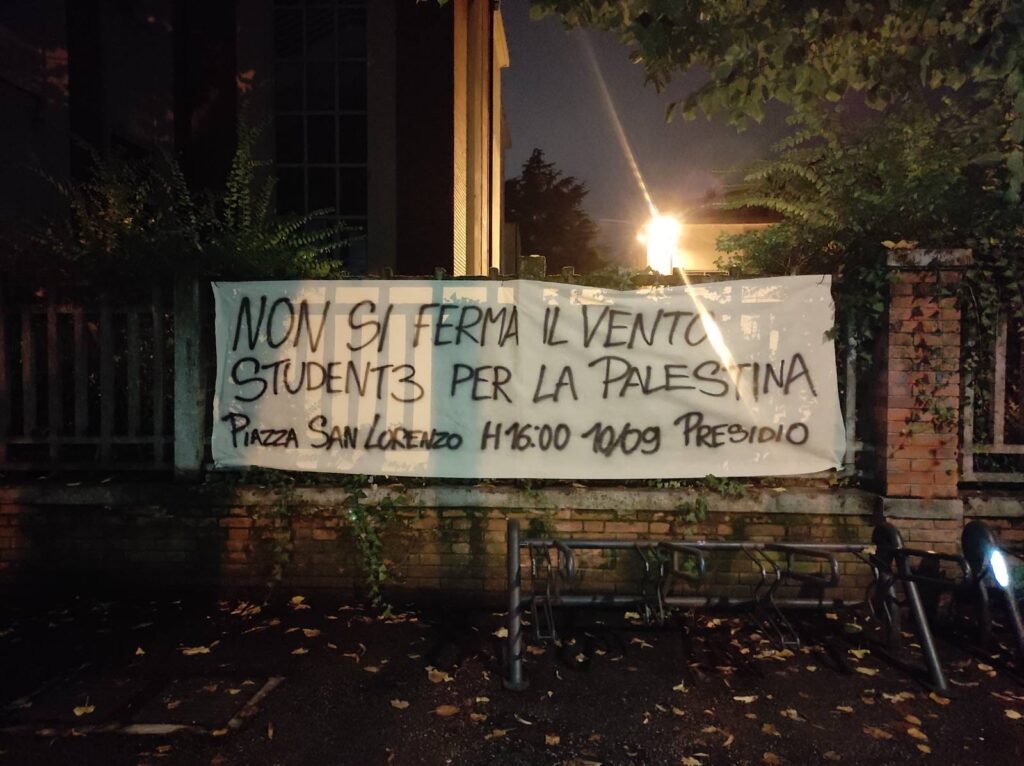 NON SI FERMA IL VENTO
STUDENT3 PER LA PALESTINA
PIAZZA SAN LORENZO H16:00 10/09 PRESIDIO